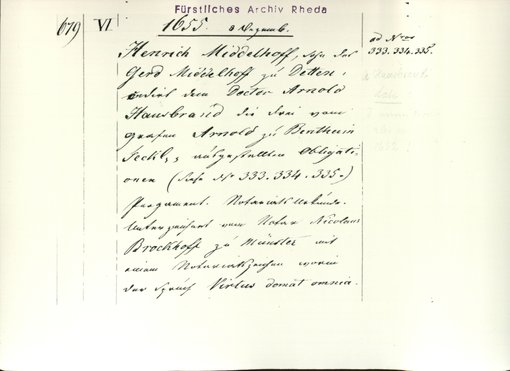 Fürstliches Archiv Rheda
679 VI 1655 8 Dezemb.
ad Nros 333. 334. 335.
Henrich Middelhoff, Sohn des
Gerd Middelhoff zu Detten,
cedirt dem Doctor Arnold
Hausbrand die drei vom
Grafen Arnold zu Bentheim
Teckl., ausgestellten Obligati-
onen (siehe No 333. 334. 335.)
Pergament. Notariats Urkunde.
Unterzeichnet vom Notar Nicolaus
Brockhoff zu Münster mit
einem Notariatszeichen worin
der Spruch Virtus domat omnia.